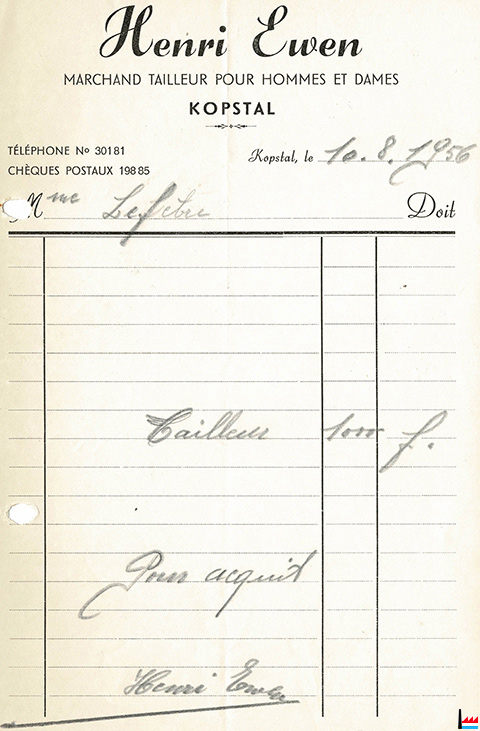 Henri Ewen
MARCHAND TAILLEUR POUR HOMMES ET DAMES
KOPSTAL
TÉLÉPHONE No 30181
CHÈQUES POSTAUX 19885
Kopstal, le 10. 8. 1956
Mme Lefebre Doit
Tailleur 1000 f.
Pour acquit
Henri Ewen